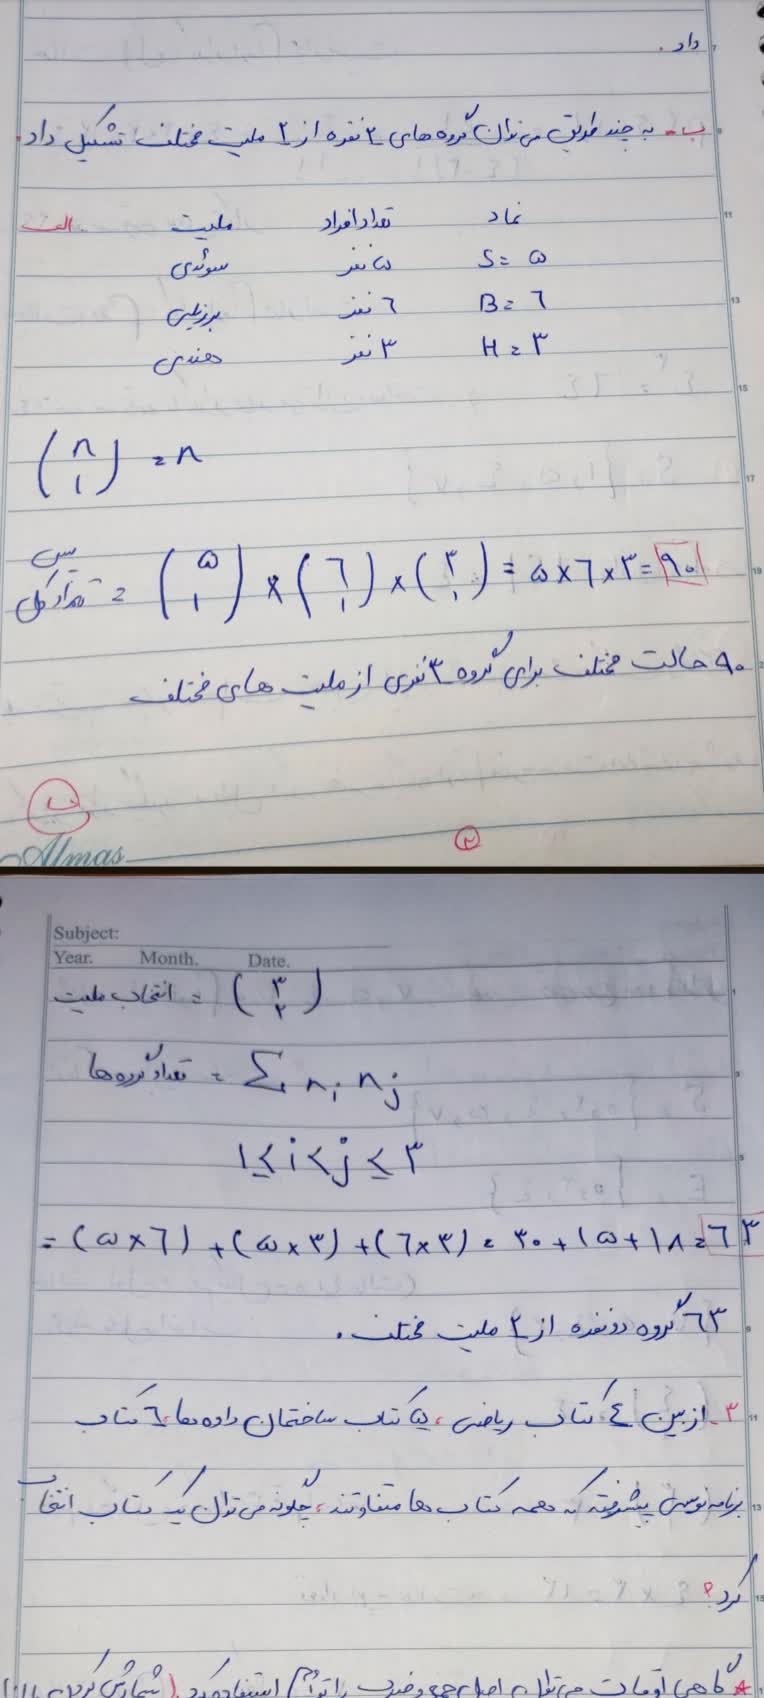 داد.
ب. به چند طریق می توان گروه های ۲ نفره از ۲ ملیت مختلف تشکیل داد.
الف. ملیت تعداد افراد نماد
سوئدی ۵ نفر S = ۵
برزیلی ۶ نفر B = ۶
هندی ۳ نفر H = ۳
(n 1) = n
پس
تعداد کل = (۵ ۱) × (۶ ۱) × (۳ ۱) = ۵ × ۶ × ۳ = ۹۰
۹۰ حالت مختلف برای گروه ۳ نفری از ملیت های مختلف
Almas
۲
Subject:
Year. Month. Date.
انتخاب ملیت = (۳ ۲)
تعداد گروه ها = Σ nᵢ nⱼ
۱ ≤ i < j ≤ ۳
= (۵ × ۶) + (۵ × ۳) + (۶ × ۳) = ۳۰ + ۱۵ + ۱۸ = ۶۳
۶۳ گروه دونفره از ۲ ملیت مختلف.
۳_ از بین ۴ کتاب ریاضی، ۵ کتاب ساختمان داده ها، ۶ کتاب
برنامه نویسی پیشرفته که همه کتاب ها متفاوتند، چگونه می توان یک کتاب انتخاب
کرد؟
* گاهی اوقات می توان اصل جمع و ضرب را توأم استفاده کرد.